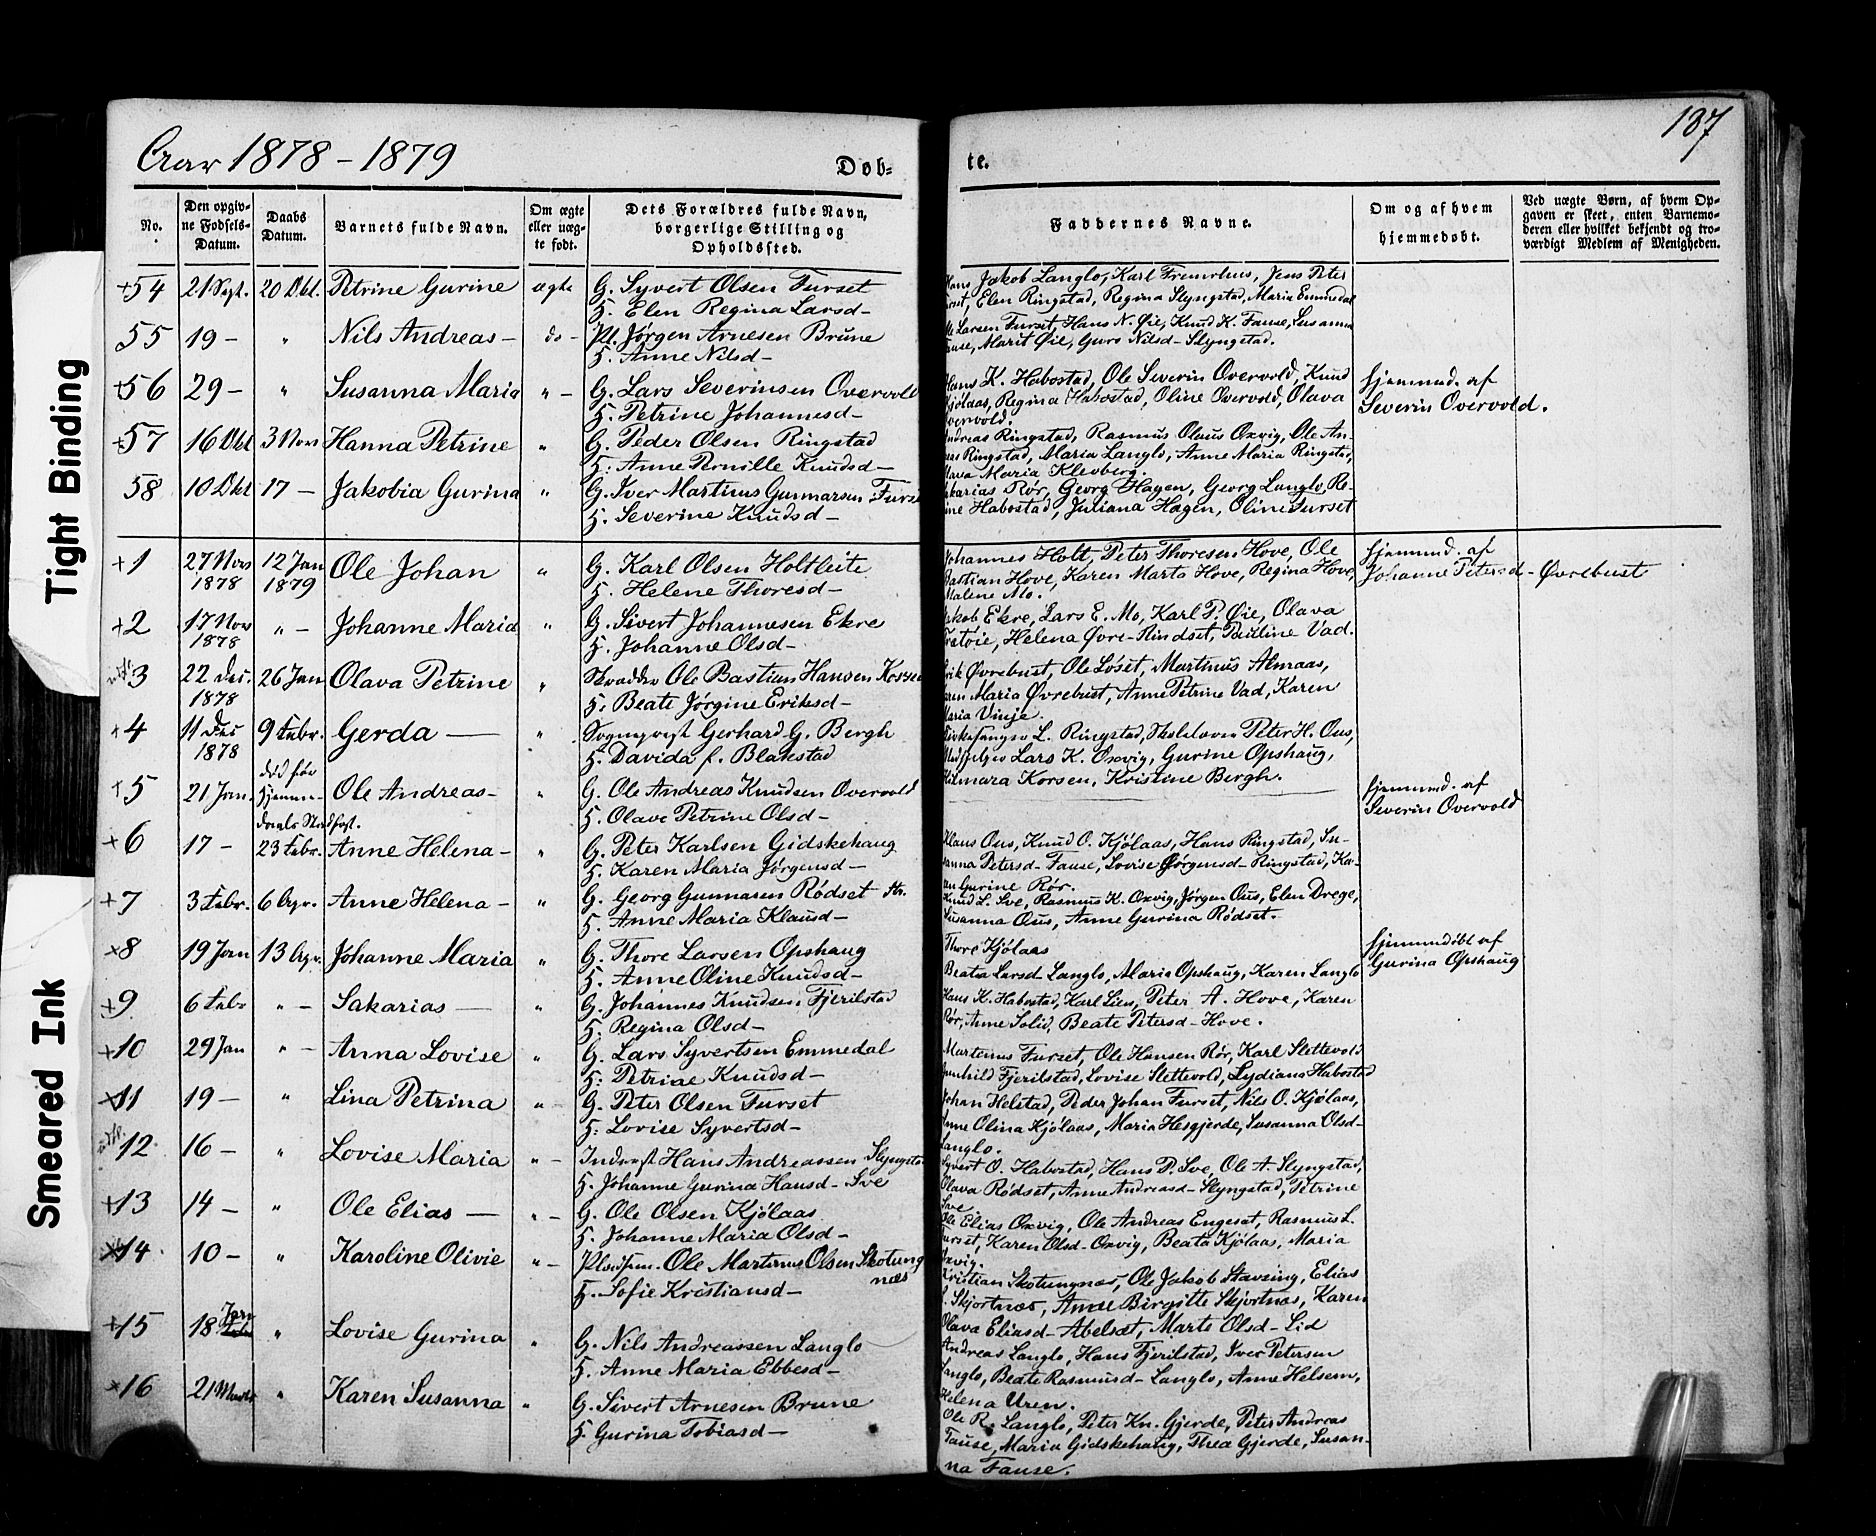 Aar 1878 - 1879
Døb-
te.
187
No.
Den opgiv-
ne Fødsels-
Datum.
Daabs
Datum.
Barnets fulde Navn.
Om ægte
eller uæg-
te født.
Dets Forældres fulde Navn,
borgerlige Stilling og
Opholdssted.
Faddernes Navne.
Om og af hvem
hjemmedøbt.
Ved uægte Børn, af hvem Op-
gaven er skeet, enten Barnemo-
deren eller hvilket bekjendt og tro-
værdigt Medlem af Menigheden.
+54 21 Sept. 20 Okt. Petrine Gurine ægte G. Syvert Olsen Furset
H. Elen Regina Larsd-
Jakob Langlo, Karl Fremehus, Jens Peter
Furset, Elen Ringstad, Regina Slyngstad, Maria Emmedal
55 19 - " Nils Andreas - do - Pl. Jørgen Arnesen Brune
H. Anne Nilsd-
Larsen Furset, Hans N. Øie, Knud K. Fause, Susanna
Fause, Marit Øie, Guro Nilsd- Slyngstad.
+56 29 - " Susanna Maria " - G. Lars Severinsen Overvold
H. Petrine Johannesd-
Hans K. Habostad, Ole Severin Overvold, Knud
Kjølaas, Regina Habostad, Oline Overvold, Olava
Overvold.
hjemmd. af
Severin Overvold.
+57 16 Okt 3 Nov Hanna Petrine " G. Peder Olsen Ringstad
H. Anne Pernille Knudsd-
Andreas Ringstad, Rasmus Olaus Oxvig, Ole An-
dreas Ringstad, Maria Langlo, Anne Maria Ringstad,
Olava Maria Klevberg.
58 10 Okt 17 - Jakobia Gurina " G. Iver Martinus Gunnarsen Furset
H. Severine Knudsd-
Sakarias Rør, Georg Hagen, Georg Langlo, Re-
gine Habostad, Juliana Hagen, Oline Furset
+1 27 Nov 12 Jan Ole Johan " G. Karl Olsen Holtleite
1878 1879
H. Helene Thoresd-
Johannes Holt, Peter Thoresen Hove, Ole
Bastian Hove, Karen Marta Hove, Regina Hove,
Malene Mo.
hjemmd. af
Johanne Petersd- Øvrebust
+2 17 Nov " - Johanne Maria " G. Sivert Johannesen Ekre
1878
H. Johanne Olsd-
Jakob Ekre, Lars E. Mo, Karl P. Øie, Olava
Øvre-Rindset, Pauline Vad.
3 22 Dec. 26 Jan Olava Petrine " Ole Bastian Hansen
1878
H. Beate Jørgine Eriksd-
Erik Øvrebust, Ole Løset, Martinus Almaas,
Karen Maria Øvrebust, Anne Petrine Vad, Karen
Maria Vinje.
+4 11 Dec 9 Febr. Gerda - " Sogneprest Gerhard G. Bergh
1878
H. Davida f. Blakstad
Kirkesanger L. Ringstad, Skolelærer Peter H. Ous,
Medhjelper Lars K. Oxvig, Gurine Opshaug,
Hilmara Korsen, Kristine Bergh.
+5 21 Jan. død før
hjemme-
daabs Stadfest.
Ole Andreas - " G. Ole Andreas Knudsen Overvold
H. Olave Petrine Olsd-
hjemmd. af
Severin Overvold
+6 17 - 23 Febr. Anne Helena - " G. Peter Karlsen Gidskehaug
H. Karen Maria Jørgensd-
Klaus Ous, Knud O. Kjølaas, Hans Ringstad, Su-
sanna Petersd- Fause, Lovise Jørgensd- Ringstad, Ka-
ren Gurine Rør.
+7 3 Febr. 6 Apr. Anne Helena - " G. Georg Gunnasen Rødset
H. Anne Maria Klausd-
Knud L. Sve, Rasmus K. Oxvig, Jørgen Ous, Elen Drege,
Susanna Ous, Anne Gurina Rødset.
+8 19 Jan 13 Apr. Johanne Maria " G. Thore Larsen Opshaug
H. Anne Oline Knudsd-
Thore Kjølaas
Beata Larsd- Langlo, Maria Opshaug, Karen Langlo
hjemmedøbt af
Gurina Opshaug
+9 6 Febr " - Sakarias - " G. Johannes Knudsen Fjerilstad
H. Regina Olsd-
Hans K. Habostad, Karl Lien, Peter A. Hove, Karen
Rør, Anne Solid, Beate Petersd- Hove.
+10 29 Jan " - Anna Lovise " G. Lars Syvertsen Emmedal
H. Petrine Knudsd-
Martinus Furset, Ole Hansen Rør, Karl Slettevold
Gunhild Fjerilstad, Lovise Slettevold, Lydiana Habostad
+11 19 - " Lina Petrina " - G. Peter Olsen Furset
H. Lovise Syvertsd-
Johan Helstad, Peder Johan Furset, Nils O. Kjølaas,
Anne Olina Kjølaas, Maria Hesgjerde, Susanna Olsd-
Langlo.
12 16 - " Lovise Maria " - Inderst Hans Andreassen Slyngstad
H. Johanne Gurina Hansd- Sve
Syvert O. Habostad, Hans P. Sve, Ole A. Slyngstad,
Olava Rødset, Anne Andreasd- Slyngstad, Petrine
Sve.
+13 14 - " Ole Elias - " - G. Ole Olsen Kjølaas
H. Johanne Maria Olsd-
Ole Elias Oxvig, Ole Andreas Engeset, Rasmus L.
Furset, Karen Olsd- Oxvig, Beata Kjølaas, Maria
Oxvig.
14 10 - " Karoline Olivie " - Ole Martinus Olsen Skotung
næs
H. Sofie Kristiansd-
Kristian Skotungnæs, Ole Jakob Stavseng, Elias
Skjortnæs, Anne Birgitte Skjortnæs, Karen
Olava Eliasd- Abelsæt, Marte Olsd- Lid
+15 18 Jan " Lovise Gurina " G. Nils Andreassen Langlo
H. Anne Maria Ebbesd-
Andreas Langlo, Hans Fjerilstad, Iver Petersen
Langlo, Beate Rasmusd- Langlo, Anne Helsem,
Helena Uren.
+16 21 Marts " Karen Susanna " G. Sivert Arnesen Brune
H. Gurina Tobiasd-
Ole R. Langlo, Peter Kn. Gjerde, Peter Andreas
Fause, Maria Gidskehaug, Thea Gjerde, Susan-
na Fause.
Tight Binding
Smeared Ink